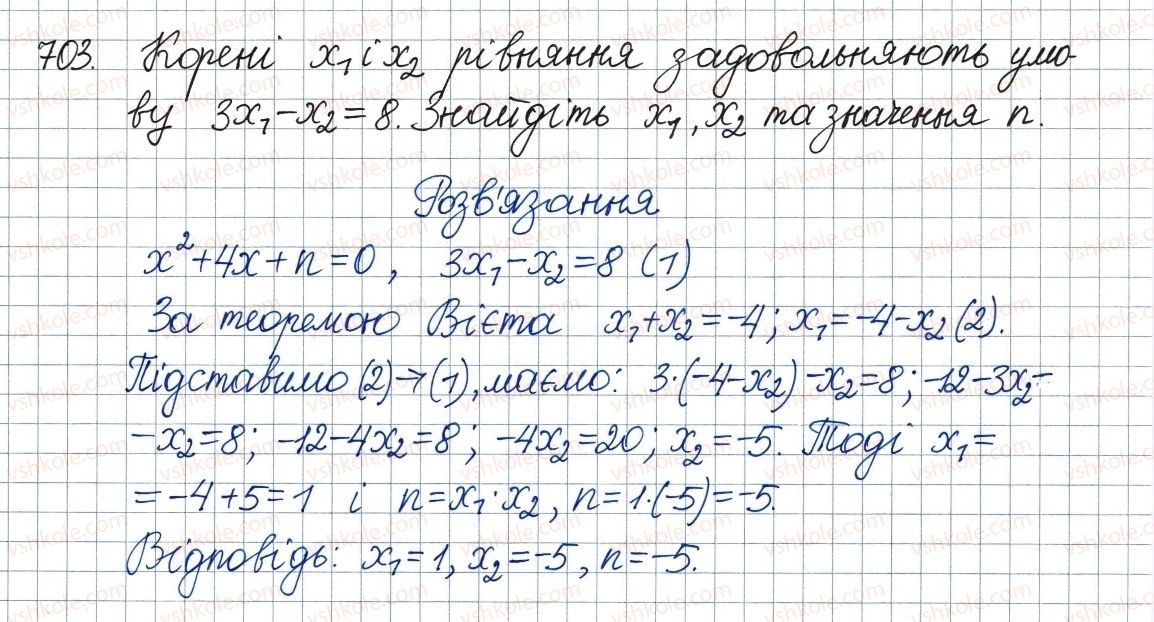 703. Корені x₁ і x₂ рівняння задовольняють умо-
ву 3x₁-x₂=8. Знайдіть x₁, x₂ та значення n.
Розв'язання
x²+4x+n=0, 3x₁-x₂=8 (1)
За теоремою Вієта x₁+x₂=-4; x₁=-4-x₂ (2).
Підставимо (2)→(1), маємо: 3·(-4-x₂)-x₂=8; -12-3x₂-
-x₂=8; -12-4x₂=8; -4x₂=20; x₂=-5. Тоді x₁=
=-4+5=1 і n=x₁·x₂, n=1·(-5)=-5.
Відповідь: x₁=1, x₂=-5, n=-5.